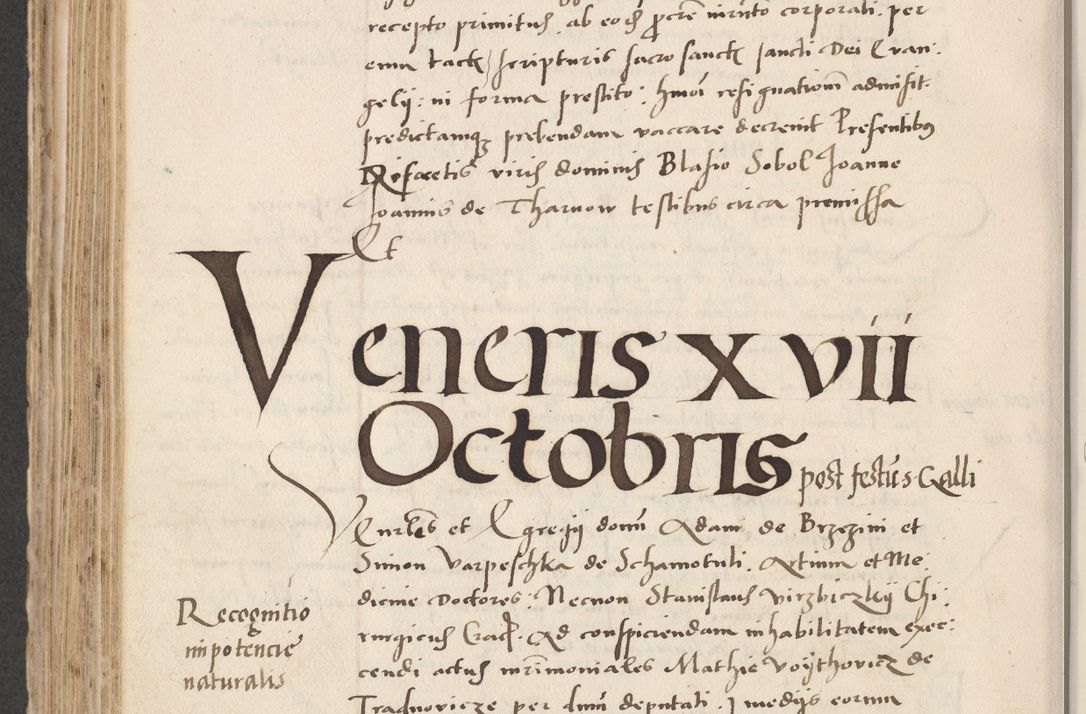 recepto primitus ab eodem procre iurinto corporali per
eum tack scripturis sacro sanck sancti Dei Evan:
gelij: in forma prestito: hmoi resignationem admisit.
predictamq prebendam vaccare decrevit Presentibus
Difcretis viris dominis Blasio Sobol Joanne
Joannis de Tharnow testibus circa premissa
Et
Veneris xvii
Octobris post festus Galli
Venrles et Egregij domi Adam de Brzezini et
Simon Varpeschka de Schamotuli. Artium et Me:
dicine Doctores. Necnon Stanislaus Virzbiczky Chi:
rurgicus Crac. Ad conspiciendam inhabilitatem exec:
cendi actus mrimoniales Mathie Voythovicz de
Tradnovicze per dmi deputati. I medijs eorum
Recognitio
impotencie
naturalis